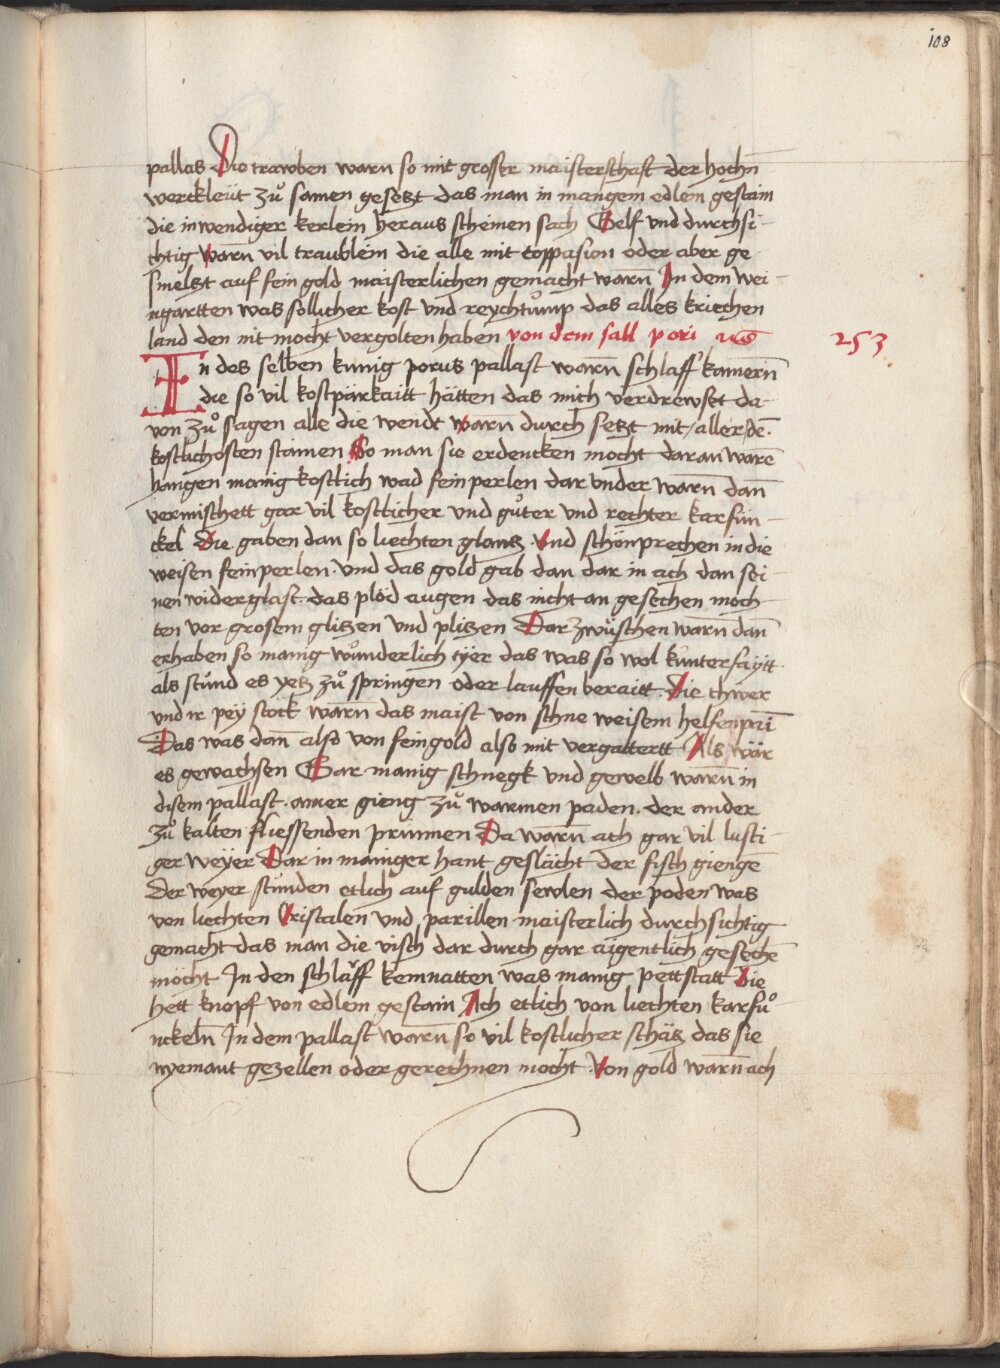 108
pallas Die trawben warn so mit grosser maisterschaft der hochn
werckleüt zuͦ samen gesetzt das man in mangem edlem gestain
die inwendiger kerlein heraus scheinen sach Gelf vnd durchsi-
chtig warn̄ vil traublein die alle mit toppasion oder aber ge
smeltzt auf fein gold maisterlichen gemacht warn̄ In dem wei-
ngartten was sollicher kost vnd reychtuͦmp das alles kriechen
land den nit mocht vergolten haben von dem sall pori
253
In des selben kunig porus pallast warn̄ schlaff kamern̄
die so vil kostpärkaitt hätten das mich verdrewset da-
von zuͦ sagen alle die wendt warn̄ durch setzt mit aller de
kostlichosten stainen So man sie erdencken mocht daran warē
hangen manig kostlich wad fein perlen dar vnder warn̄ dan̄
vermischett gar vil kostlicher vnd guͦter vnd rechter karfun-
ckel Die gaben dan so liechten glantz Vnd schönprechen in die
weisen fein perlen Vnd das gold gab dan dar in ach dan sei-
nen widerglast das plöd augen das nicht an gesechen moch
ten vor grosem glitzen vnd plitzen Dar zwüschen warn̄ dan̄
erhaben so manig wuͦnderlich tÿer das was so wol kunterfaytt
als stuͦnd es yetz zuͦ springen oder lauffen beraitt Die thwer
vnd ir peÿ stock warn̄ das maist von schne weisem helfenpain̄
Das was dan̄ also von fein gold also mit vergattertt Als wär
es gewachsen Gar manig schnegk vnd gewelb warn̄ in
disem pallast ainer gieng zuͦ warmen paden der ander
zuͦ kalten fliessenden prunnen Da warn̄ ach gar vil lusti-
ger weÿer Dar in maniger hant geslächt der fisch giengē
Der weyer stuͦnden etlich auf gulden sewlen der poden was
von liechten Cristalen vnd parillen maisterlich durchsichtig
gemacht das man die visch dar durch gar aigentlich gesechē
möcht In den schläff kemnatten was manig pettstatt Die
hett knopf von edlem gestain Ach etlich von liechten karfuͦ
nckeln̄ In dem pallast warn̄ so vil kostlicher schätz das sie
nyemant gezellen oder gerechnen mocht Von gold warn̄ ach